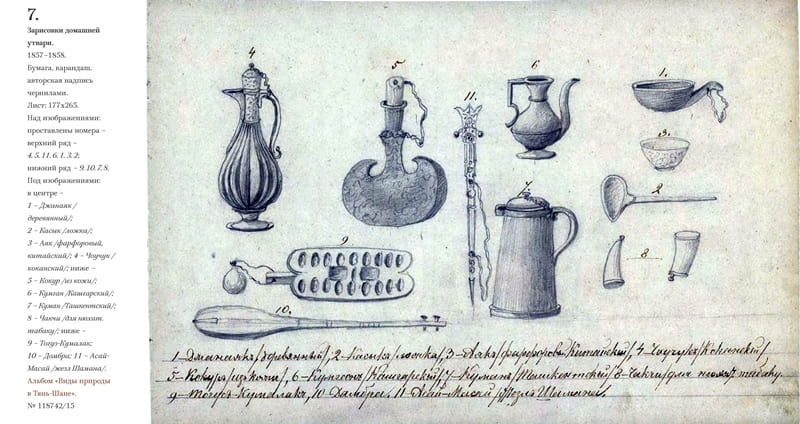 7.
Зарисовки домашней
утвари.
1857–1858.
Бумага, карандаш,
авторская надпись
чернилами.
Лист: 177х265.
Над изображениями:
проставлены номера –
верхний ряд –
4. 5. 11. 6. 1. 3. 2;
нижний ряд – 9. 10. 7. 8.
Под изображениями:
в центре –
1 – Джанаяк /
деревянный/;
2 – Касык /ложка/;
3 – Аяк /фарфоровый,
китайский/; 4 – Чоучук /
коканский/; ниже –
5 – Кокур /из кожи/;
6 – Кумган /Кашгарский/;
7 – Куман /Ташкентский/;
8 – Чакчи /для нюхат.
табаку/; ниже –
9 – Тогуз-Кумалак;
10 – Домбра; 11 – Асай-
Масай /жезл Шамана/.
Альбом «Виды природы
в Тянь-Шане».
№ 118742/15
4
5
11.
6
1.
3.
2
7.
8
9
10.
1–Джанаякъ/деревянный/, 2–Касыкъ/ложка/, 3–Аякъ/фарфоровъ Китайскій/, 4–Чоучукъ/Коканскій/
5–Кокуръ/изъ кожи/, 6–Кумганъ/Кашгарскій/ 7–Куманъ/Ташкентскій/ 8–Чакчи/для нюхат табаку
9–Тогузъ-Кумалакъ, 10 Домбра, 11–Асай-Масай/Жезлъ Шамана/.